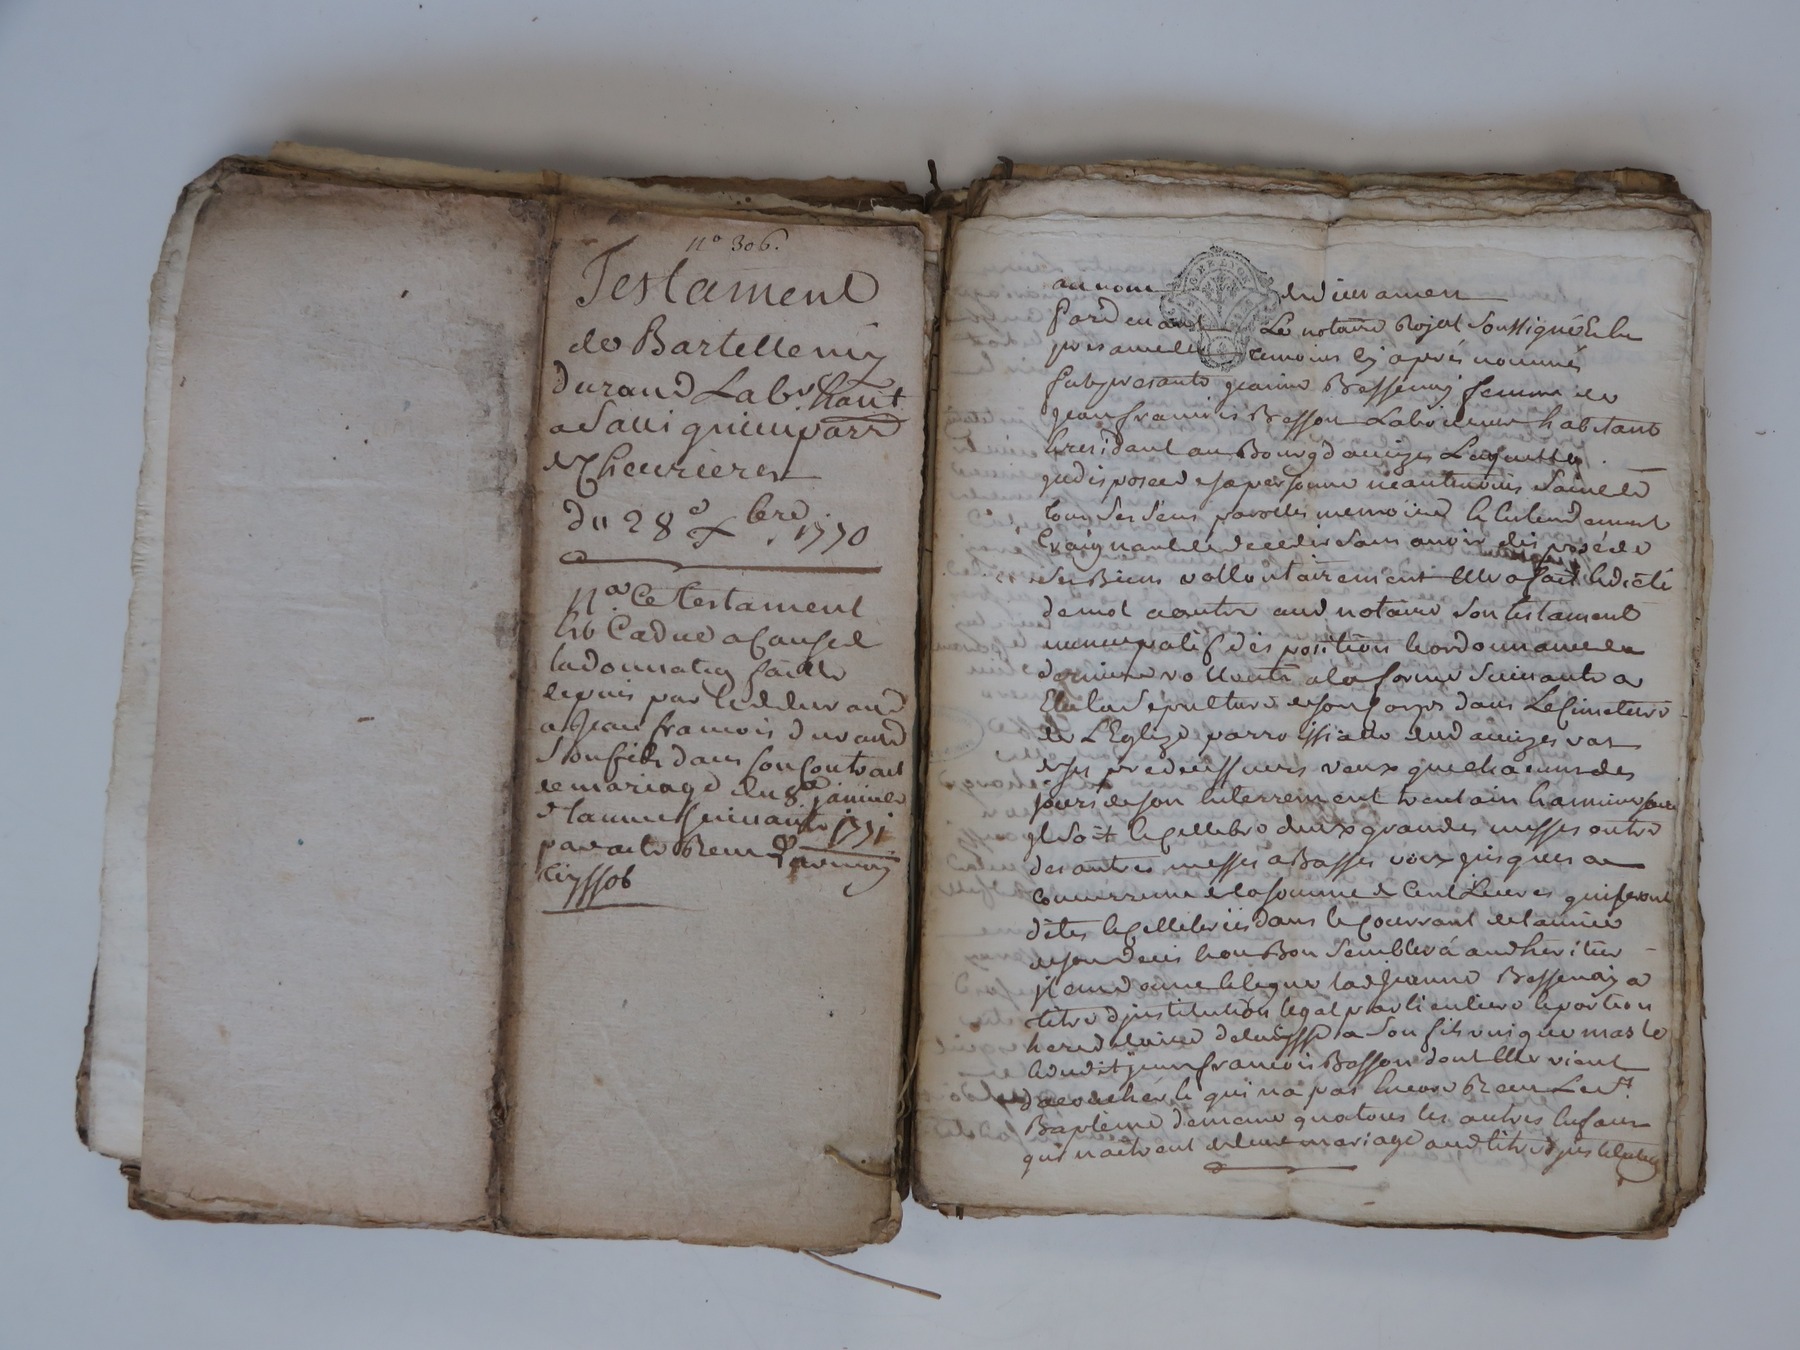 n.° 306.
Testament
de Bartellemy
durand Lab.r hant
a Sauvignieu parr
de Cheurieres
du 28.e xbre. 1770
n.a Ce testament
Est Caduc a Cause de
la donnation faitte
depuis par led durand
a Jean francois durand
Son fils dans Son Contrat
de mariage du 8.e janvier
de lannee Suivante 1771
par acte Receu
au nom de dieu amen
Pardevant Le notaire Royal Soussigné Et les
presance des temoins Cy aprés nommés
fut presante jeanne Bessenay femme de
jean francois Besson Laboureur habitant
Et residant au Bourg d'aveizes Laquelle
jndisposee de sa personne neantmoins Saine de
tous Ses Sens parolle memoire Et Entendement
Craignant de deceder Sans avoir disposé de
Ses Biens vollontairement Elle a fait Et dicté
de mot a autre aud notaire Son testament
nuncupatif disposition Et ordonnance de
derniere vollonté a la forme Suivante a
Elu La Sepulture de Son Corps dans Le Cimetiere
de L'Eglize parroissialle dud aveizes
de Ses predecesseurs veux que chacuns des
jours de Son Enterrement
jl Soit Cellebré deux grandes messes outre
des autres messes a Basses voix jusques a
Concurrence de la Somme de Cent Livres qui Seront
dites Et Cellebrées dans le Courrant de lannée
de Son deces Et ou Bon Semblera aud heritier
jtem donne Et legue lad Jeanne Bessenay a
titre d'jnstitution legat particulier Et portion
hereditaire delaissé a Son fils unique masle
Et dudit jean francois Besson dont Elle vient
d'accoucher Et qui na pas Encore Receu Le St.
Baptême de meme qua tous les autres Enfans
qui naitront de leur mariage aud titre d'jnstitution